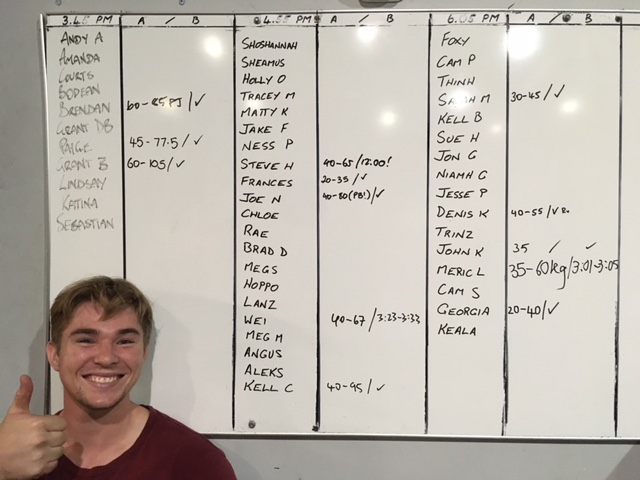 3.45 PM A / B
ANDY A
AMANDA
COURTS
BODEAN
BRENDAN 60-85 PJ/✓
GRANT DB
PAIGE 45-77.5/✓
GRANT B 60-105/✓
LINDSAY
KATINA
SEBASTIAN
4.55 PM A / B
SHOSHANNAH
SHEAMUS
HOLLY O
TRACEY M
MATTY K
JAKE F
NESS P
STEVE H 40-65/12:00!
FRANCES 20-35/✓
JOE N 40-80(PB!)/✓
CHLOE
RAE
BRAD D
MEGS
HOPPO
LANZ
WEI 40-67/3:23-3:33
MEG M
ANGUS
ALEKS
KELL C 40-95/✓
6.05 PM A / B
FOXY
CAM P
THINH
SARAH M 30-45/✓
KELL B
SUE H
JON G
NIAMH G
JESSE P
DENIS K 40-55/✓
TRINZ
JOHN K 35 / ✓
MERIC L 35-60kg/3:01-3:05
CAM S
GEORGIA 20-40/✓
KEALA